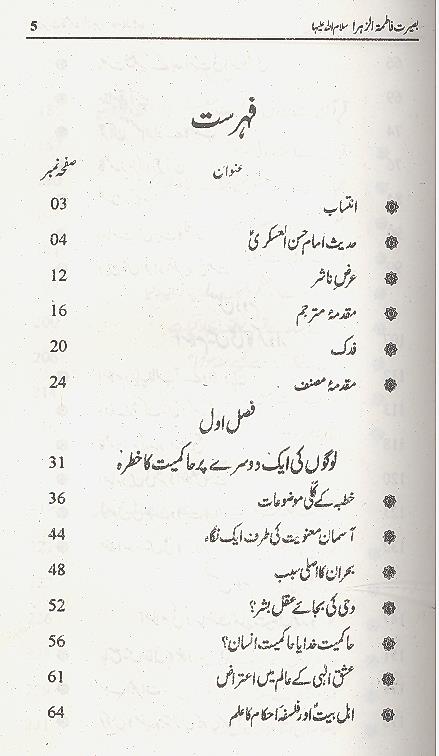 بصیرت فاطمۃ الزہرا سلام اللہ علیہا 5
فہرست
عنوان صفحہ نمبر
انتساب 03
حدیث امام حسن العسکریؑ 04
عرض ناشر 12
مقدمۂ مترجم 16
فدک 20
مقدمۂ مصنف 24
فصل اول
لوگوں کی ایک دوسرے پر حاکمیت کا خطرہ 31
خطبہ کے کلّی موضوعات 36
آسمان معنویت کی طرف ایک نگاہ 44
بحران کا اصلی سبب 48
وحی کی بجائے عقل بشر؟ 52
حاکمیت خدا یا حاکمیت انسان؟ 56
عشق الٰہی کے عالم میں اعتراض 61
اہل بیتؑ اور فلسفہ احکام کا علم 64